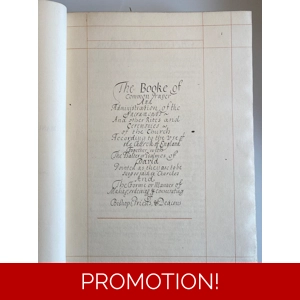 The Booke of
Common Prayer
And
Administration of the
Sacraments
And other Rites and
Ceremonies
of the Church
According to the Use of
the Church of England
Together with
The Psalter or Psalmes of
David
Pointed as they are to be
sung or said in Churches
And
The Forme or Manner of
Making ordaining & consecrating
of
Bishops Priests & Deacons
PROMOTION!